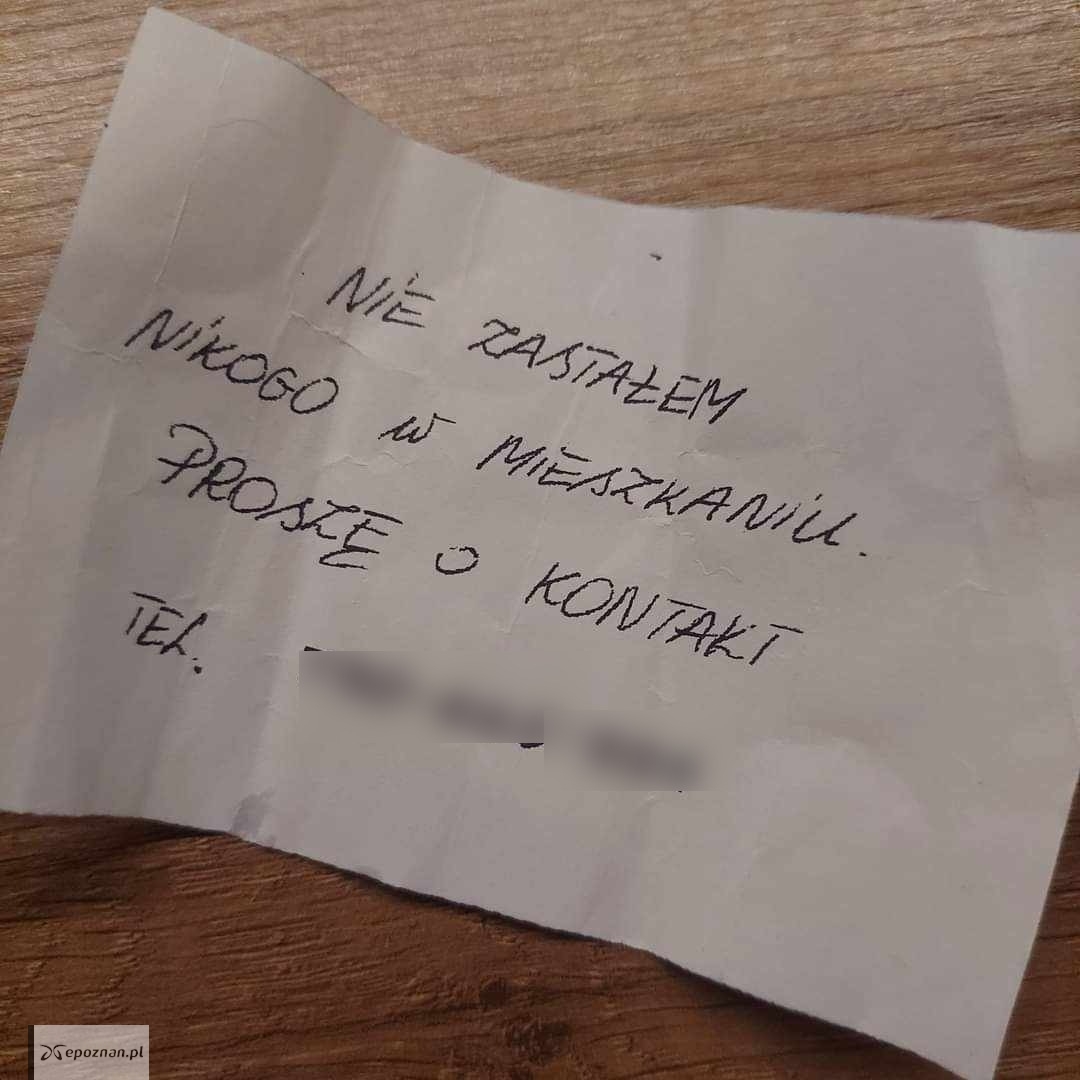 NIE ZASTAŁEM
NIKOGO W MIESZKANIU.
PROSZĘ O KONTAKT
TEL.
epoznan.pl